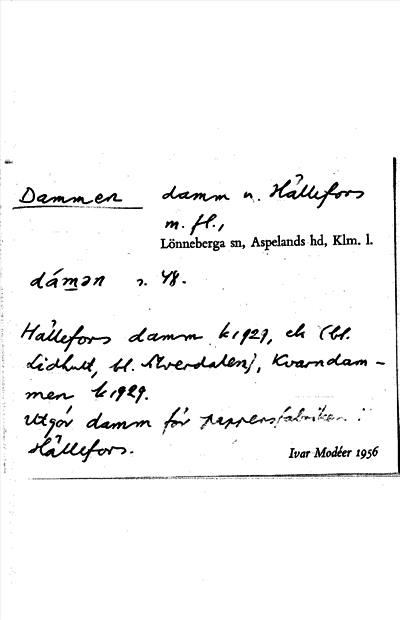 Dammen damm n. Hällefors
m. fl.,
Lönneberga sn, Aspelands hd, Klm. l.
dámən s. 48.
Hällefors damm k 1929, ek (bl.
Lidhult, bl. Älverdalen), Kvarndam-
men k 1929.
Utgör damm för pappersfabriken i
Hällefors.
Ivar Modéer 1956